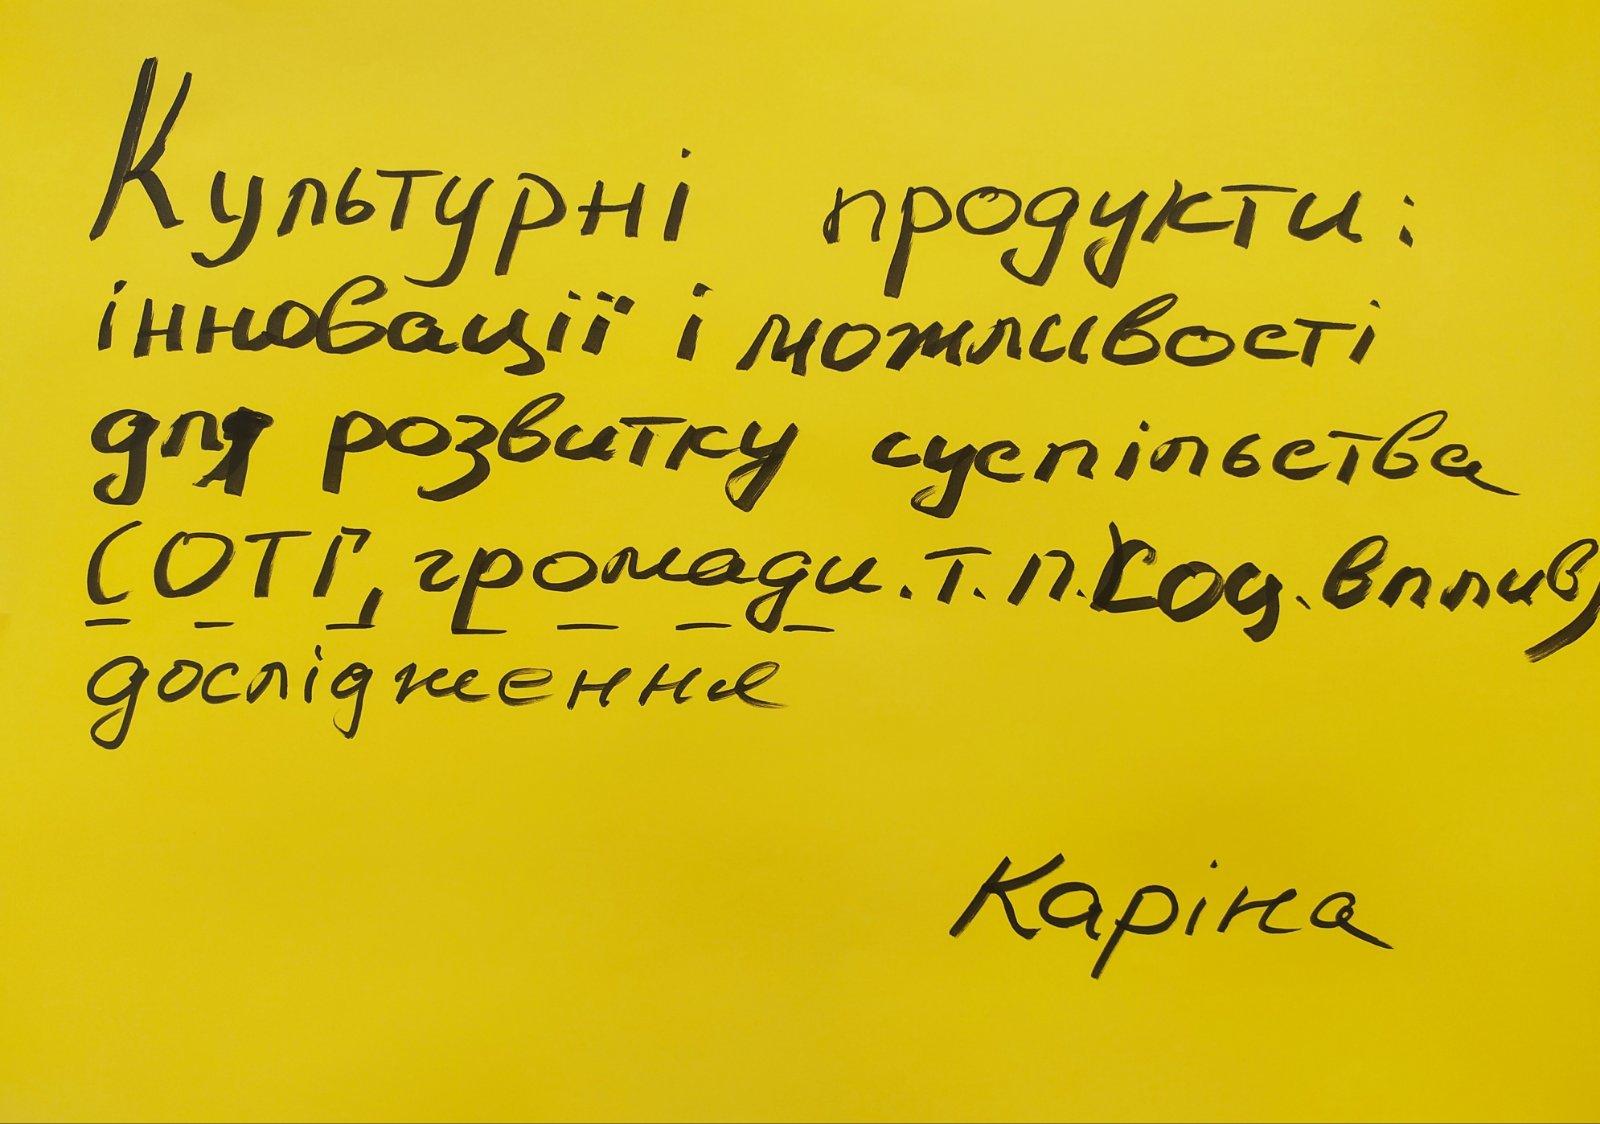 Культурні продукти:
інновації і можливості
для розвитку суспільства
(ОТГ, громади. т.п.) соц. вплив,
дослідження
Каріна